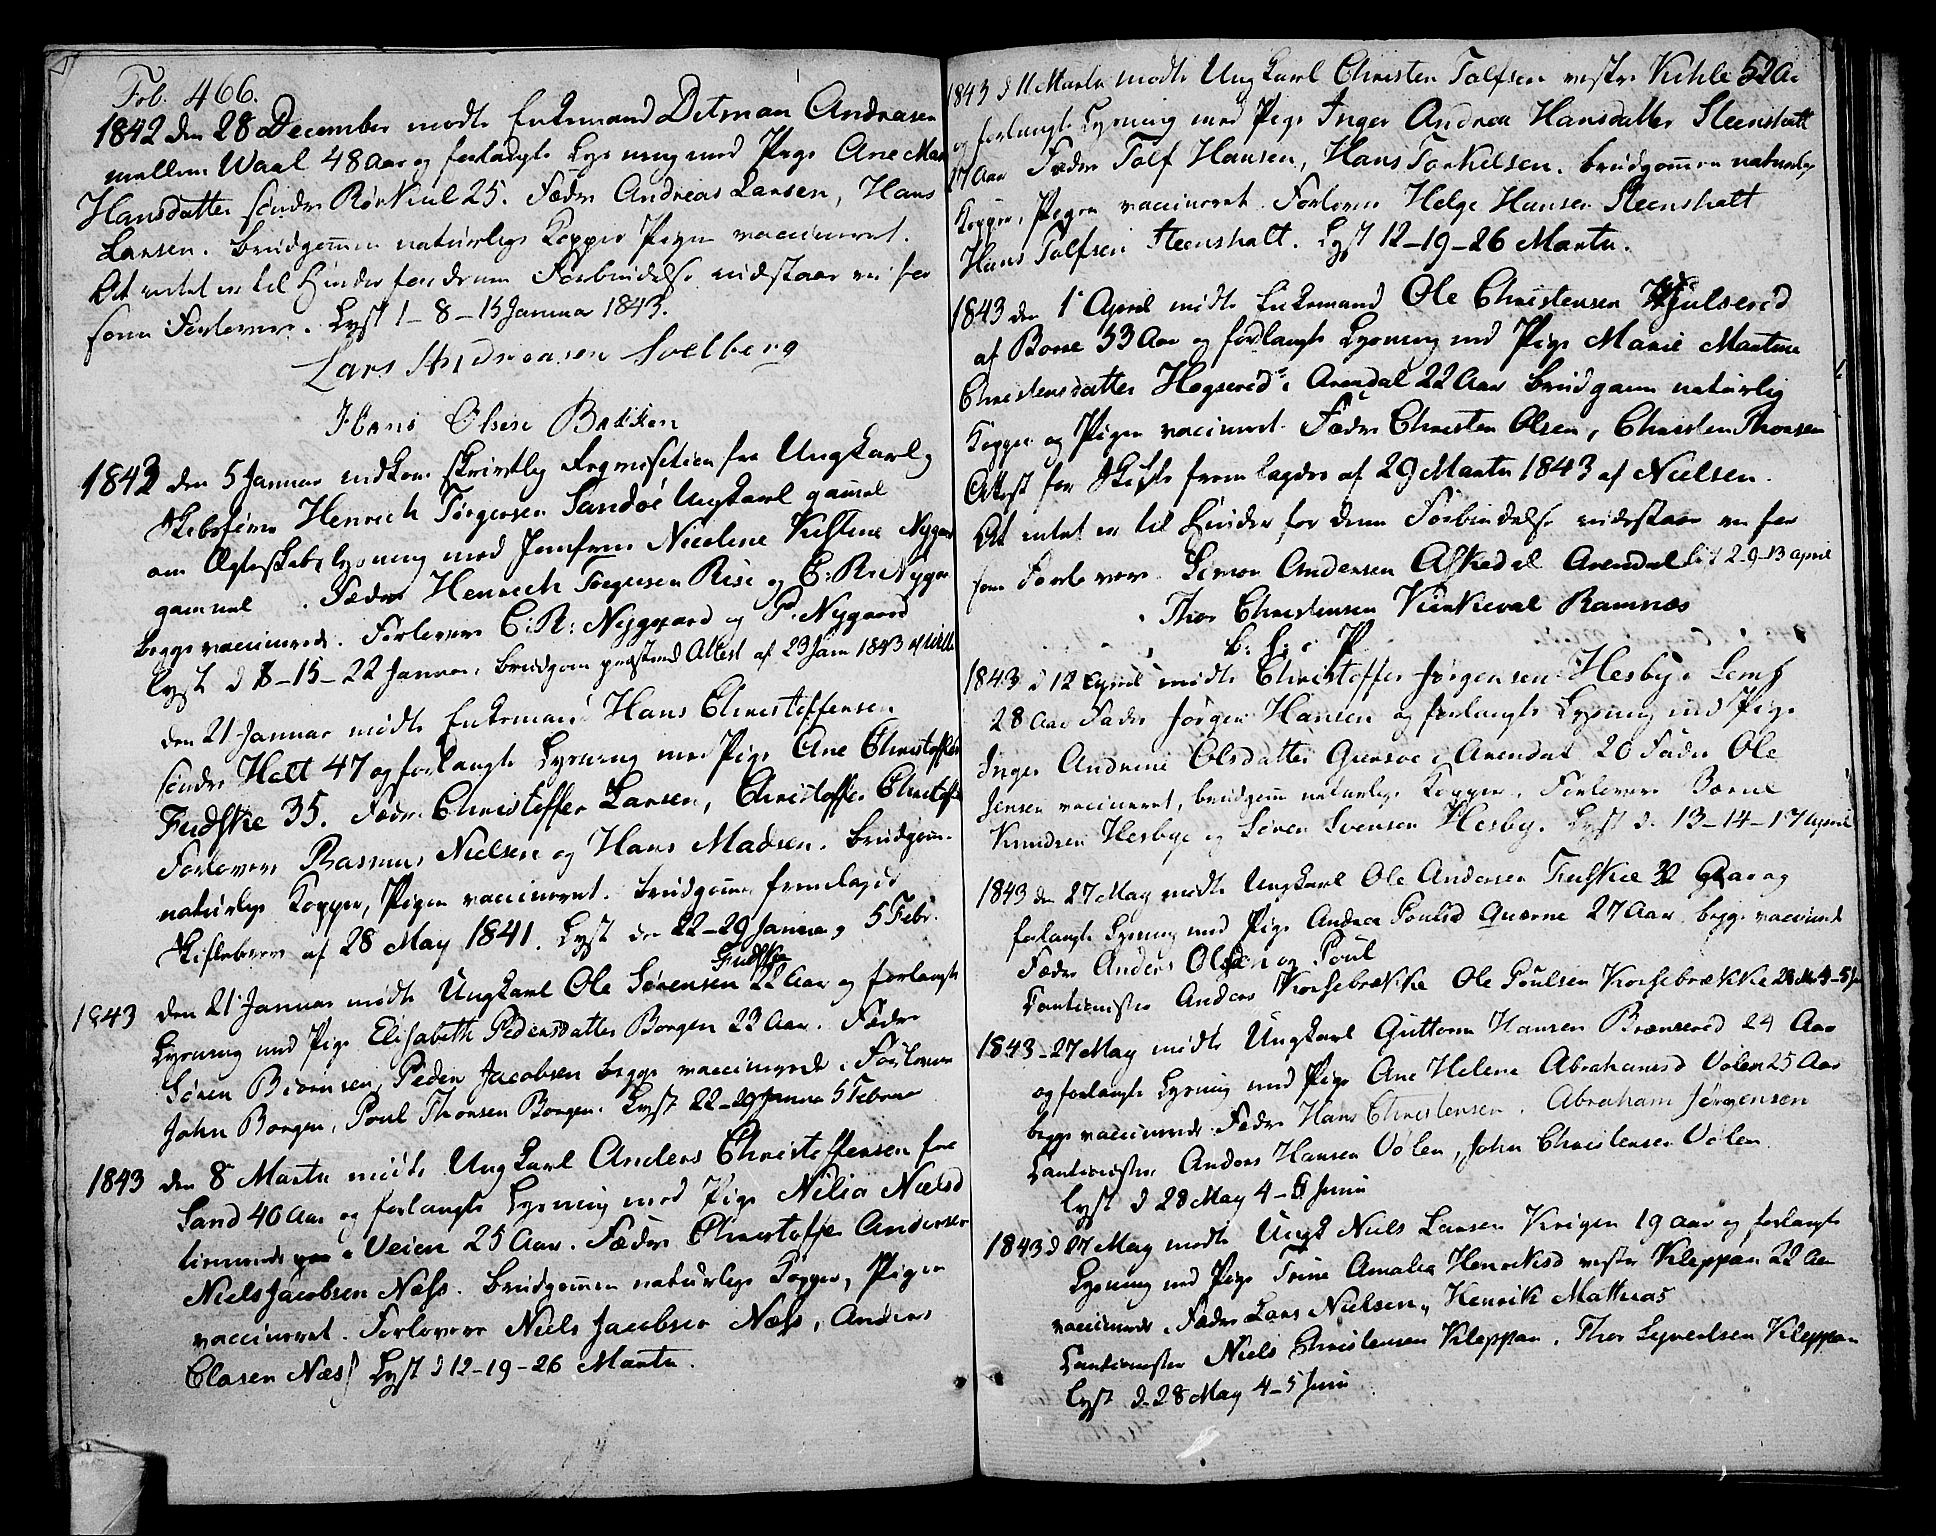 Fol. 466.
1842 den 28 December mødte Enkemand Ditman Andreasen
mellem Waal 48 Aar og forlangte Lysning med Pige Ane Mar
Hansdatter søndre Rørkiul 25. Fædre Andreas Larsen, Hans
Larsen. brudgomen naturlige Kopper Pigen vaccineret.
At intet er til Hinder for denne Forbindelse indstaar vi for
som Forlovere. Lyst 1-8-15 Januar 1843.
Lars Andreasen Solberg
Hans Olsen Bakken
1843 den 5 Januar indkom skrivtlig Reqvisition fra Ungkarl
Skibsfører Henrich Jørgensen Sandøe Ungkarl gamel
om Ægteskabslysning med Jomfrue Nicoline Kistine Nygaar
gammel . Fædre Henrich Jørgensen Rise og C: R: Nygaa
begge vaccinerede. Forlovere C: R: Nyggaard og P. Nygaard
lyst d 8-15-22 Januar. brudgom Attest af 23 Jan 1843 af
den 21 Januar mødte Enkemand Hans Christoffersen
søndre Hatt 47 og forlangte Lysning med Pige Ane Christoffer
Fudske 35. Fædre Christoffer Larsen, Christoffer Christof
Forlovere Rasmus Nielsen og Hans Madsen. brudgom
naturlige Kopper, Pigen vaccineret. brudgomen fremlagde
Skiftebrev af 28 May 1841. Lyst den 22-29 Januar, 5 Febr.
Fudske
1843 den 21 Januar mødte Ungkarl Ole Sørensen 22 Aar og forlangte
Lysning med Pige Elisabeth Pedersdatter Borgen 23 Aar. Fædre
Søren Biørnsen, Peder Jacobsen begge vaccinerede. Forlovere
John Borgen, Poul Thorsen Borgen. Lyst 22-29 Januar 5 Februar
1843 den 8 Marts mødte Ungkarl Anders Christoffersen fra
Sand 40 Aar og forlangte Lysning med Pige Nilia Nielsd
tienende paa Veien 25 Aar. Fædre Christoffer Andersen
Niels Jacobsen Næss. Brudgommen naturlige Kopper, Pigen
vaccineret. Forlovere Niels Jacobsen Næss, Anders
Clasen Næss Lyst d 12-19-26 Marts.
1843 d 11 Marts mødte Ungkarl Christen Tolfsen vestre Kihle 52 Aar
og forlangte Lysning med Pige Inger Andrea Hansdatter Steenshatt
27 Aar Fædre Tolf Hansen, Hans Torkilsen. brudgomen naturlige
Kopper, Pigen vaccineret. Forlovere Helge Hansen Steenshatt
Hans Tolfsen Steenshatt. Lyst 12-19-26 Marts.
1843 den 1 April mødte Enkemand Ole Christensen Hiulserød
af Borre 53 Aar og forlangte Lysning med Pige Marie Martine
Christensdatter Hogserød i Arendal 22 Aar brudgom naturlig
Kopper og Pigen vaccineret. Fædre Christen Olsen, Christen Thorsen
Attest for Skifte fremlagdes af 29 Marts 1843 af Nielsen.
At intet er til Hinder for denne Forbindelse indestaar vi for
som Forlovere. Simon Andersen Askedal Arendal lyst 2-9-13 April
Thor Christensen Kirkeval Ramnæs
1843 d 12 April mødte Christoffer Jørgensen Hesby i Sems
28 Aar Fader Jørgen Hansen og forlangte Lysning med Pige
Inger Andrine Olsdatter Gunsoe i Arendal 20 Fader Ole
Jensen vaccineret, brudgom naturlige Kopper. Forlovere
Knudsen Hesbye og Soren Svensen Hesby. Lyst d. 13-14-17 April
1843 den 27 May mødte Ungkarl Ole Andersen Fuskie 32 Aar og
forlangte Lysning med Pige Andrea Poulsd Qværne 27 Aar begge vaccinerede
Fædre Anders Olsen og Poul
Cautionister Anders Korsebrække Ole Poulsen Korsebrække 28 M 4-5 Ju
1843-27 May mødte Ungkarl Guttorm Hansen Brænserød 24 Aar
og forlangte Lysning med Pige Ane Helene Abrahamsd Vølen 25 Aar
begge vaccinerede Fædre Hans Christensen. Abraham Jørgensen
Cautionister Anders Hansen Vølen, John Christensen Vølen
Lyst d 28 May 4-5 Juni
1843 d 27 May mødte Ungk Niels Larsen Krigen 19 Aar og forlangte
Lysning med Pige Trine Amalia Henriksd vestre Kleppan 22 Aar
vaccinerede. Fædre Lars Nielsen, Henrik Mathias
Cautionister Niels Christensen Kleppan. Thor Syvertsen Kleppan
Lyst d. 28 May 4-5 Juni